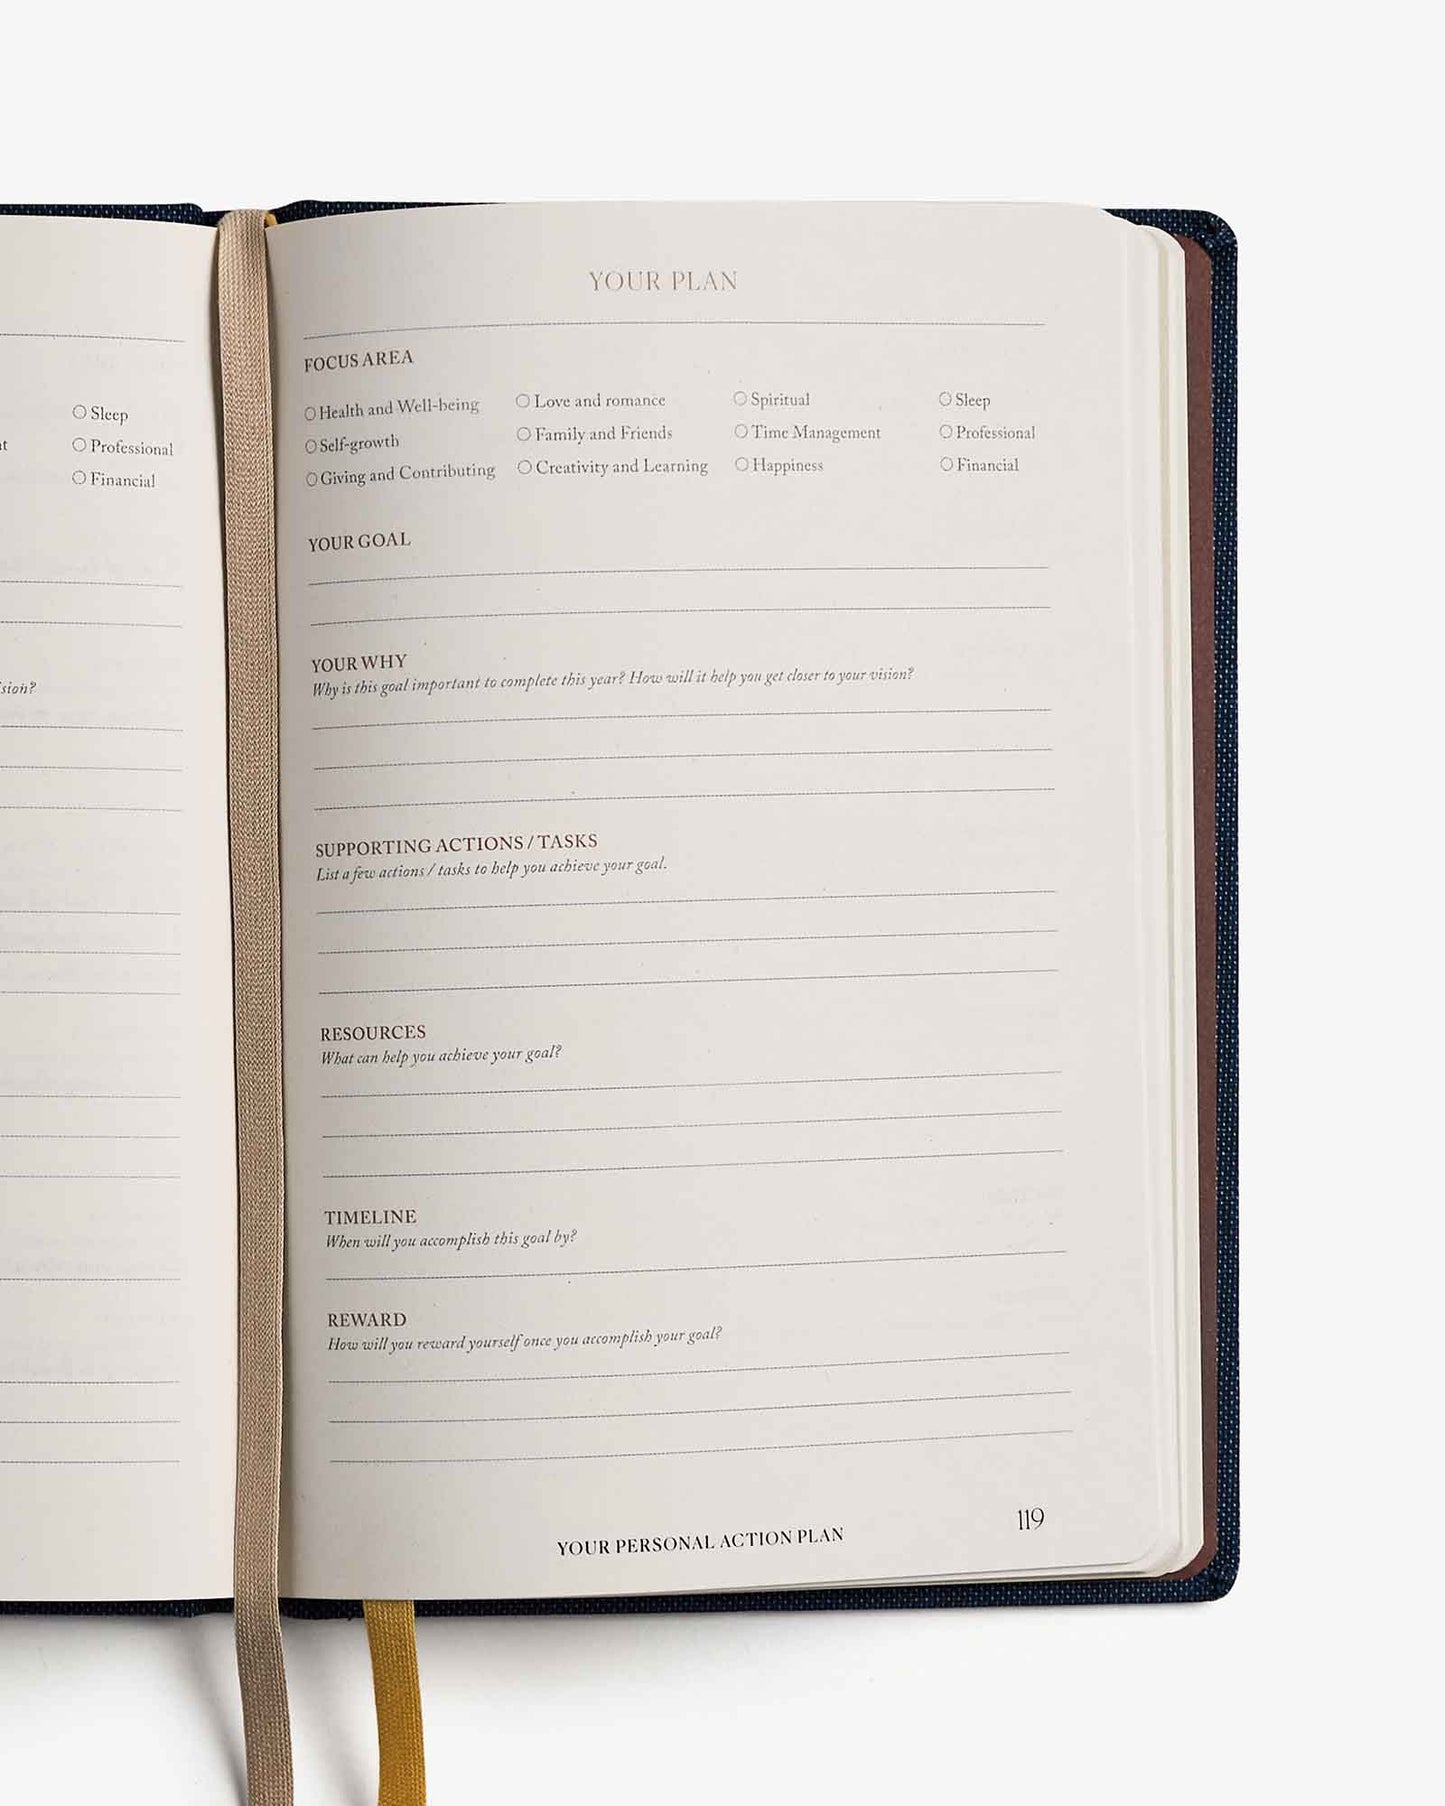 Sleep
Professional
Financial
YOUR PLAN
FOCUS AREA
Health and Well-being
Self-growth
Giving and Contributing
Love and romance
Family and Friends
Creativity and Learning
Spiritual
Time Management
Happiness
Sleep
Professional
Financial
YOUR GOAL
YOUR WHY
Why is this goal important to complete this year? How will it help you get closer to your vision?
SUPPORTING ACTIONS / TASKS
List a few actions / tasks to help you achieve your goal.
RESOURCES
What can help you achieve your goal?
TIMELINE
When will you accomplish this goal by?
REWARD
How will you reward yourself once you accomplish your goal?
YOUR PERSONAL ACTION PLAN
119